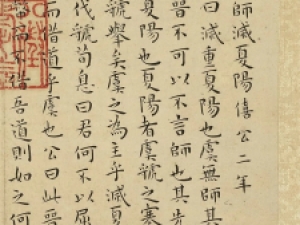 師滅夏陽僖公二年
曰滅重夏陽也虞無師其
晉不可以不言師也其先
夏陽也夏陽者虞虢之塞
虢舉矣虞之為主乎滅夏
伐虢荀息曰君何不以屈
而借道乎虞也公曰此晉
不借吾道則如之何